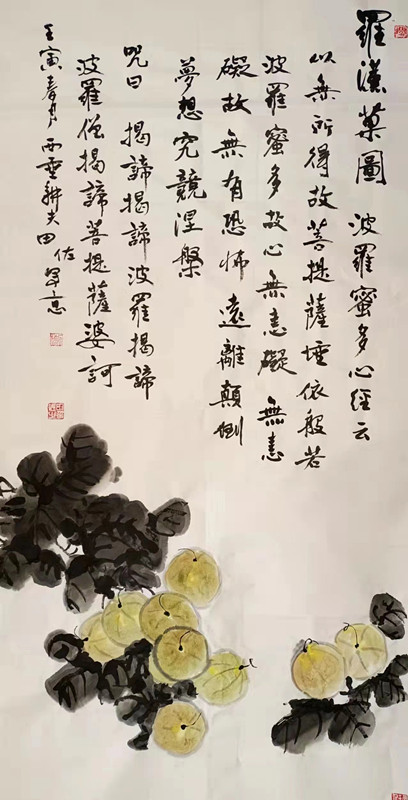 羅漢菓圖 波羅蜜多心經云
以無所得故菩提薩埵依般若
波羅蜜多故心無恚礙無恚
礙故無有恐怖遠離顛倒
夢想究競涅槃
咒曰 揭諦揭諦波羅揭諦
波羅僧揭諦菩提薩婆訶
壬寅春月西雲耕夫田佐